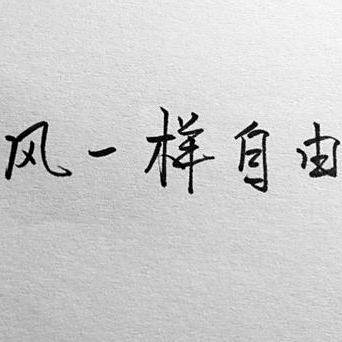 风一样自由